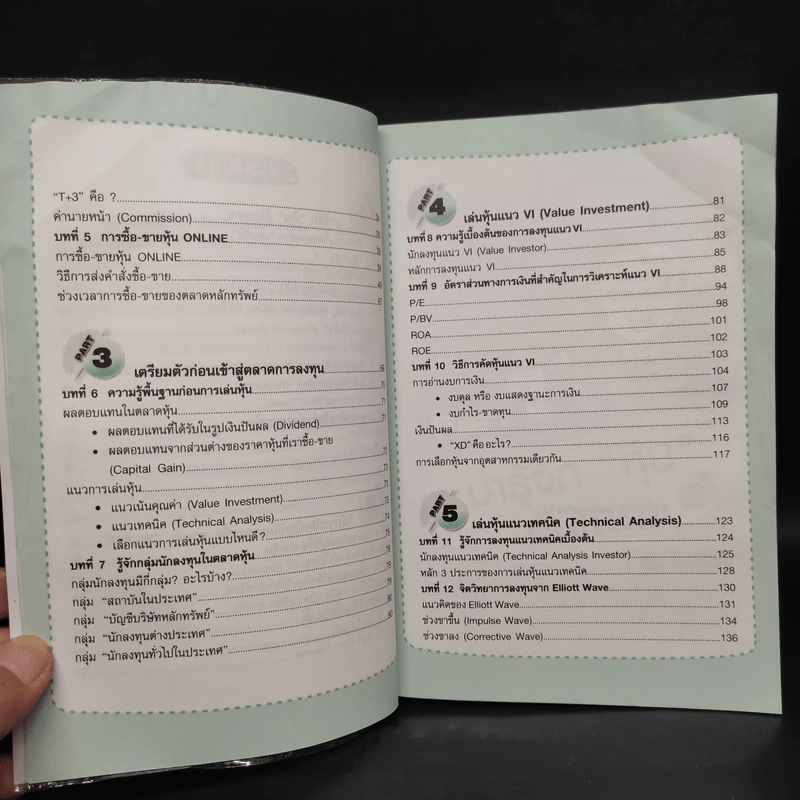 "T+3" คือ ?
ค่านายหน้า (Commission)
บทที่ 5 การซื้อ-ขายหุ้น ONLINE
การซื้อ-ขายหุ้น ONLINE
วิธีการส่งคำสั่งซื้อ-ขาย
ช่วงเวลาการซื้อ-ขายของตลาดหลักทรัพย์
PART 3
เตรียมตัวก่อนเข้าสู่ตลาดการลงทุน
บทที่ 6 ความรู้พื้นฐานก่อนการเล่นหุ้น
ผลตอบแทนในตลาดหุ้น
• ผลตอบแทนที่ได้รับในรูปเงินปันผล (Dividend)
• ผลตอบแทนจากส่วนต่างของราคาหุ้นที่เราซื้อ-ขาย
(Capital Gain)
แนวการเล่นหุ้น
• แนวเน้นคุณค่า (Value Investment)
• แนวเทคนิค (Technical Analysis)
• เลือกแนวการเล่นหุ้นแบบไหนดี?
บทที่ 7 รู้จักกลุ่มนักลงทุนในตลาดหุ้น
กลุ่มนักลงทุนมีกี่กลุ่ม? อะไรบ้าง?
กลุ่ม "สถาบันในประเทศ"
กลุ่ม "บัญชีบริษัทหลักทรัพย์"
กลุ่ม "นักลงทุนต่างประเทศ"
กลุ่ม "นักลงทุนทั่วไปในประเทศ"
PART 4
เล่นหุ้นแนว VI (Value Investment) 81
บทที่ 8 ความรู้เบื้องต้นของการลงทุนแนว VI 82
นักลงทุนแนว VI (Value Investor) 83
หลักการลงทุนแนว VI 85
บทที่ 9 อัตราส่วนทางการเงินที่สำคัญในการวิเคราะห์แนว VI 88
P/E 94
P/BV 98
ROA 101
ROE 102
บทที่ 10 วิธีการคัดหุ้นแนว VI 103
การอ่านงบการเงิน 104
• งบดุล หรือ งบแสดงฐานะการเงิน 107
• งบกำไร-ขาดทุน 109
เงินปันผล 113
• "XD" คืออะไร? 116
การเลือกหุ้นจากอุตสาหกรรมเดียวกัน 117
PART 5
เล่นหุ้นแนวเทคนิค (Technical Analysis) 123
บทที่ 11 รู้จักการลงทุนแนวเทคนิคเบื้องต้น 124
นักลงทุนแนวเทคนิค (Technical Analysis Investor) 125
หลัก 3 ประการของการเล่นหุ้นแนวเทคนิค 128
บทที่ 12 จิตวิทยาการลงทุนจาก Elliott Wave 130
แนวคิดของ Elliott Wave 131
ช่วงขาขึ้น (Impulse Wave) 134
ช่วงขาลง (Corrective Wave) 136